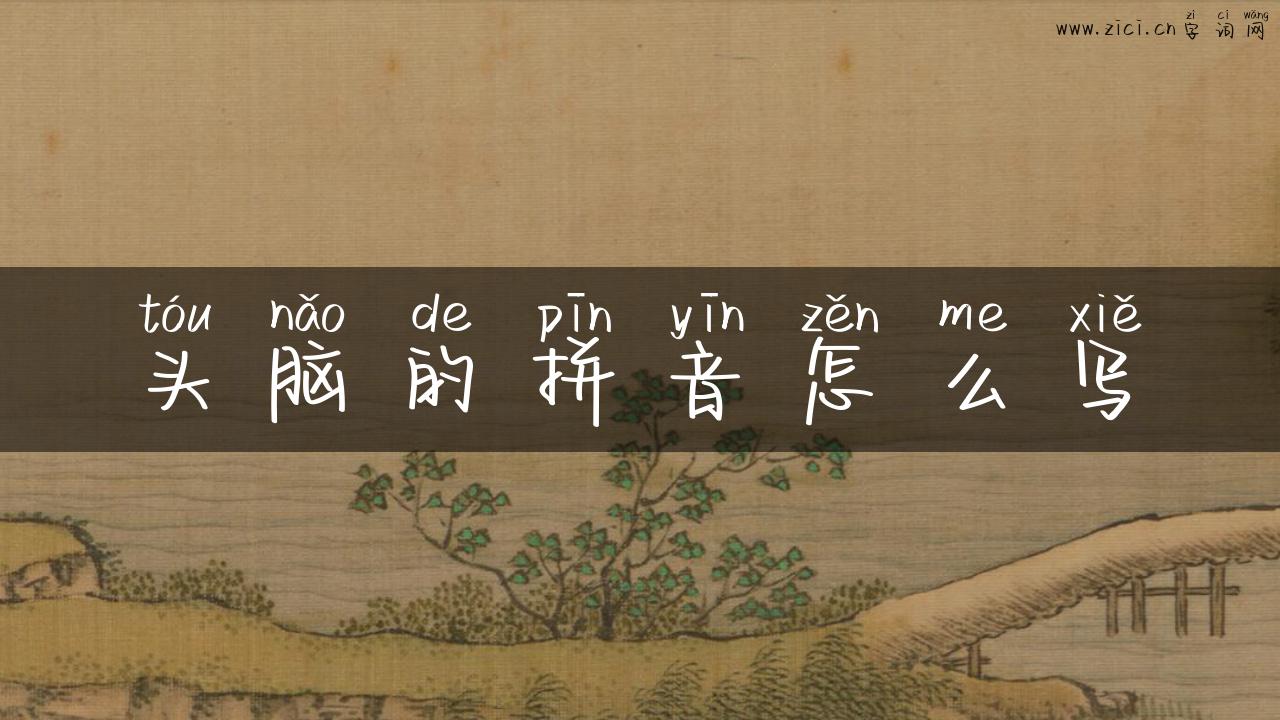 zì cí wǎng
www.zici.cn 字词网
tóu nǎo de pīn yīn zěn me xiě
头脑的拼音怎么写